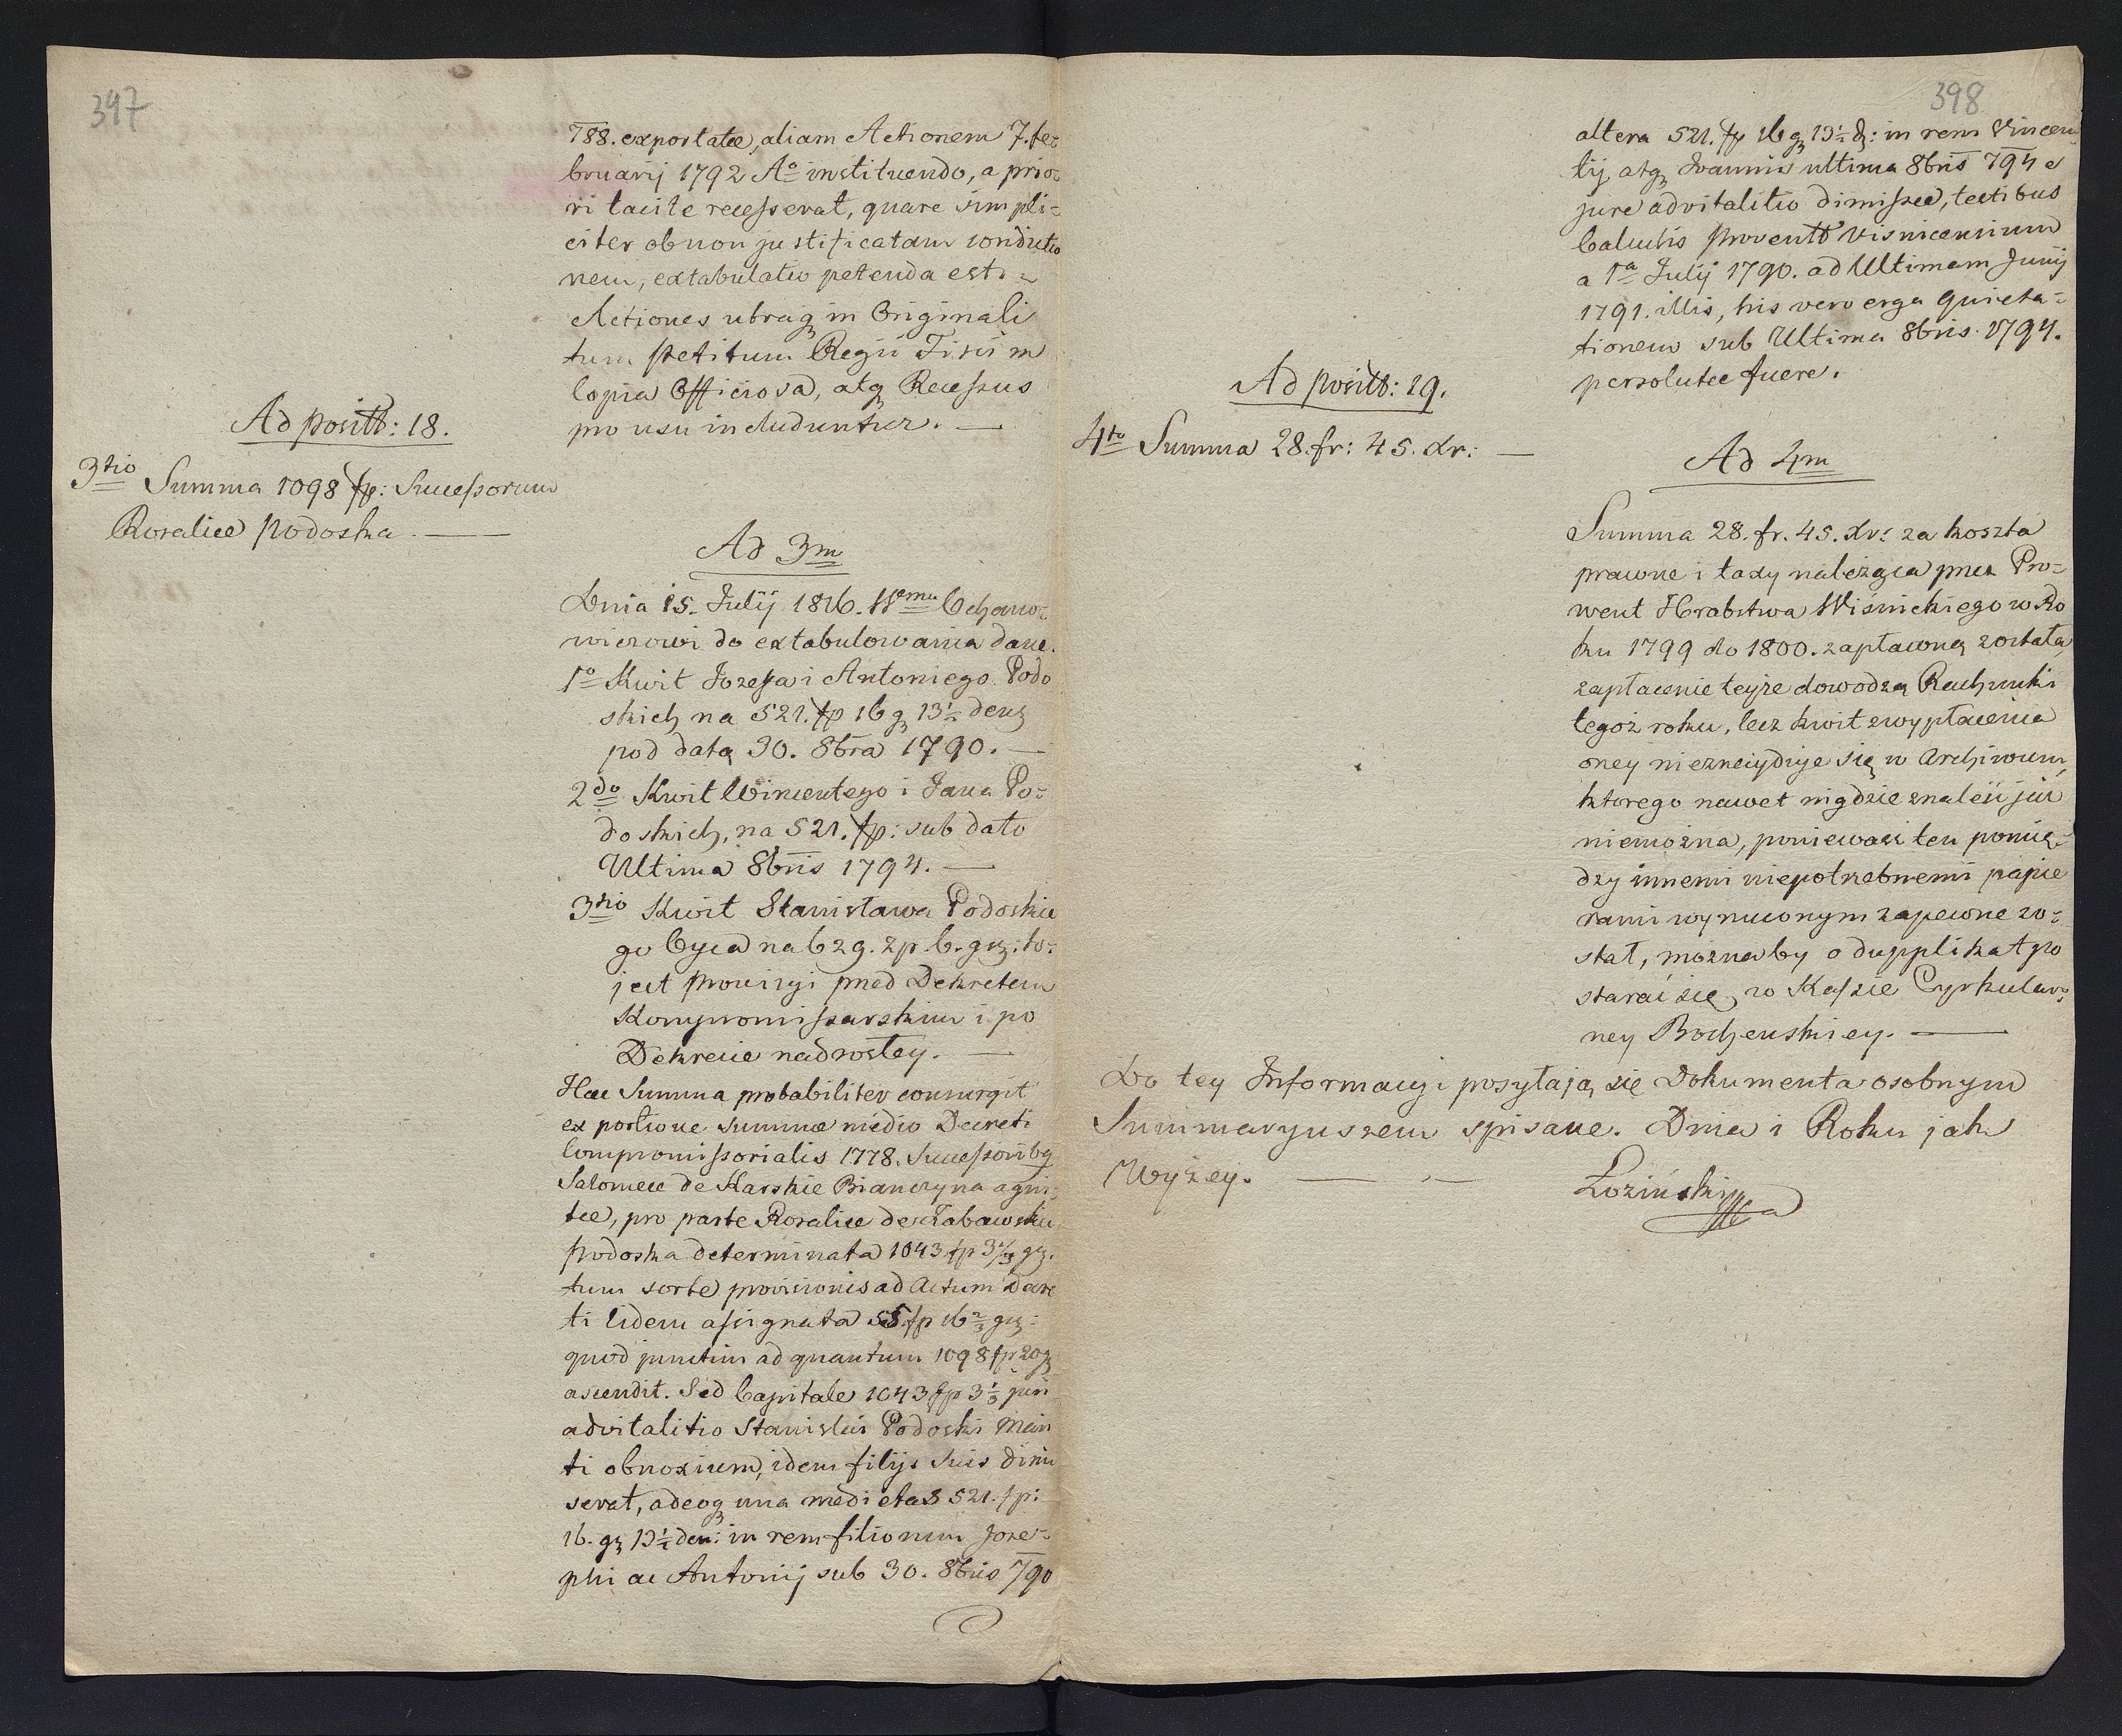 397
788. exportatæ, aliam Actionem 7. fe=
bruarij 1792 Aº instituendo, a prio=
ri tacite recesserat, quare simpli=
citer ob non justificatam conditio
nem, extabulatio petenda est. =
Actiones utraq in Originali
tum petitum Regii Fisci in
Copia Officiosa, atq Recessus
pro usu includuntur. —
Ad positt: 18.
3tio Summa 1098 fp: Successorum
Rosaliæ Podoska. —
Ad 3m
Dnia 15. Julij 1816. Wemu Ochano=
wiczowi do extabulowania dane.
1º Kwit Jozefa i Antoniego Podo
skich na 521. fp 16 g 13½ den
pod datą 30. 8bra 1790. —
2do Kwit Wincentego i Jana Po=
doskich, na 521. fp: sub dato
Ultima 8bris 1794. —
3tio Kwit Stanisława Podoskie
go Oyca na 629. zp. 6. gr: to=
jest prowizyi przed Dekretem
Kompromissarskim i po
Dekrecie nadrosłey. —
Hæc Summa probabiliter consurgit
ex portione summæ medio Decreti
Compromissorialis 1778. Successoribq
Salomeæ de Karskie Bianczyna agni=
tæ, pro parte Rosaliæ de Łabawskie
Podoska determinata 1043 fp 3⅓ gr.
tum sorte provisionis ad Actum Decre
ti itidem assignata 55 fp 16⅔ gr:
quod junctim ad quantum 1098 fp 20 g
ascendit. Sed Capitale 1043 fp 3⅓ juri
advitalitio Stanislai Podoski Mari
ti obnoxium, idem filijs suis dimi
serat, adeoq una medietas 521. fp:
16. gr 13½ den: in rem filiorum Jose=
phi ac Antonij sub 30. 8bris 790
398
altera 521. fp 16 g 13½ d: in rem Vincen=
tij atq Joannis ultima 8bris 794 e
jure advitalitio dimissæ, testibus
Calculis Proventt Visnicensium
a 1a Julij 1790. ad Ultimam Junij
1791. illis, his vero erga quieta=
tionem sub Ultima 8bris 1794.
persolutæ fuere.
Ad positt: 19.
4to Summa 28. fr: 45. Xr: —
Ad 4m
Summa 28. fr. 45. Xr: za koszta
prawne i taxy należąca przez Pro=
went Hrabstwa Wiśnickiego w Ro
ku 1799 do 1800. zapłaconą została,
zapłacenie teyże dowodzą Rachunki
tegoż roku, lecz kwit z wypłacenia
oney nieznayduje się w Archiwum,
ktorego nawet nigdzie znaleść już
niemożna, ponieważ ten pomię=
dzy innemi niepotrzebnemi papie
rami wyrzuconym zapewne zo=
stał, możnaby o dupplikat po
starać się w Kassie Cyrkular=
ney Bocheńskiey. —
Do tey Informacyi posyłają się Dokumenta osobnym
Summaryuszem spisane. Dnia i Roku jak
wyżey. —
Łoziński